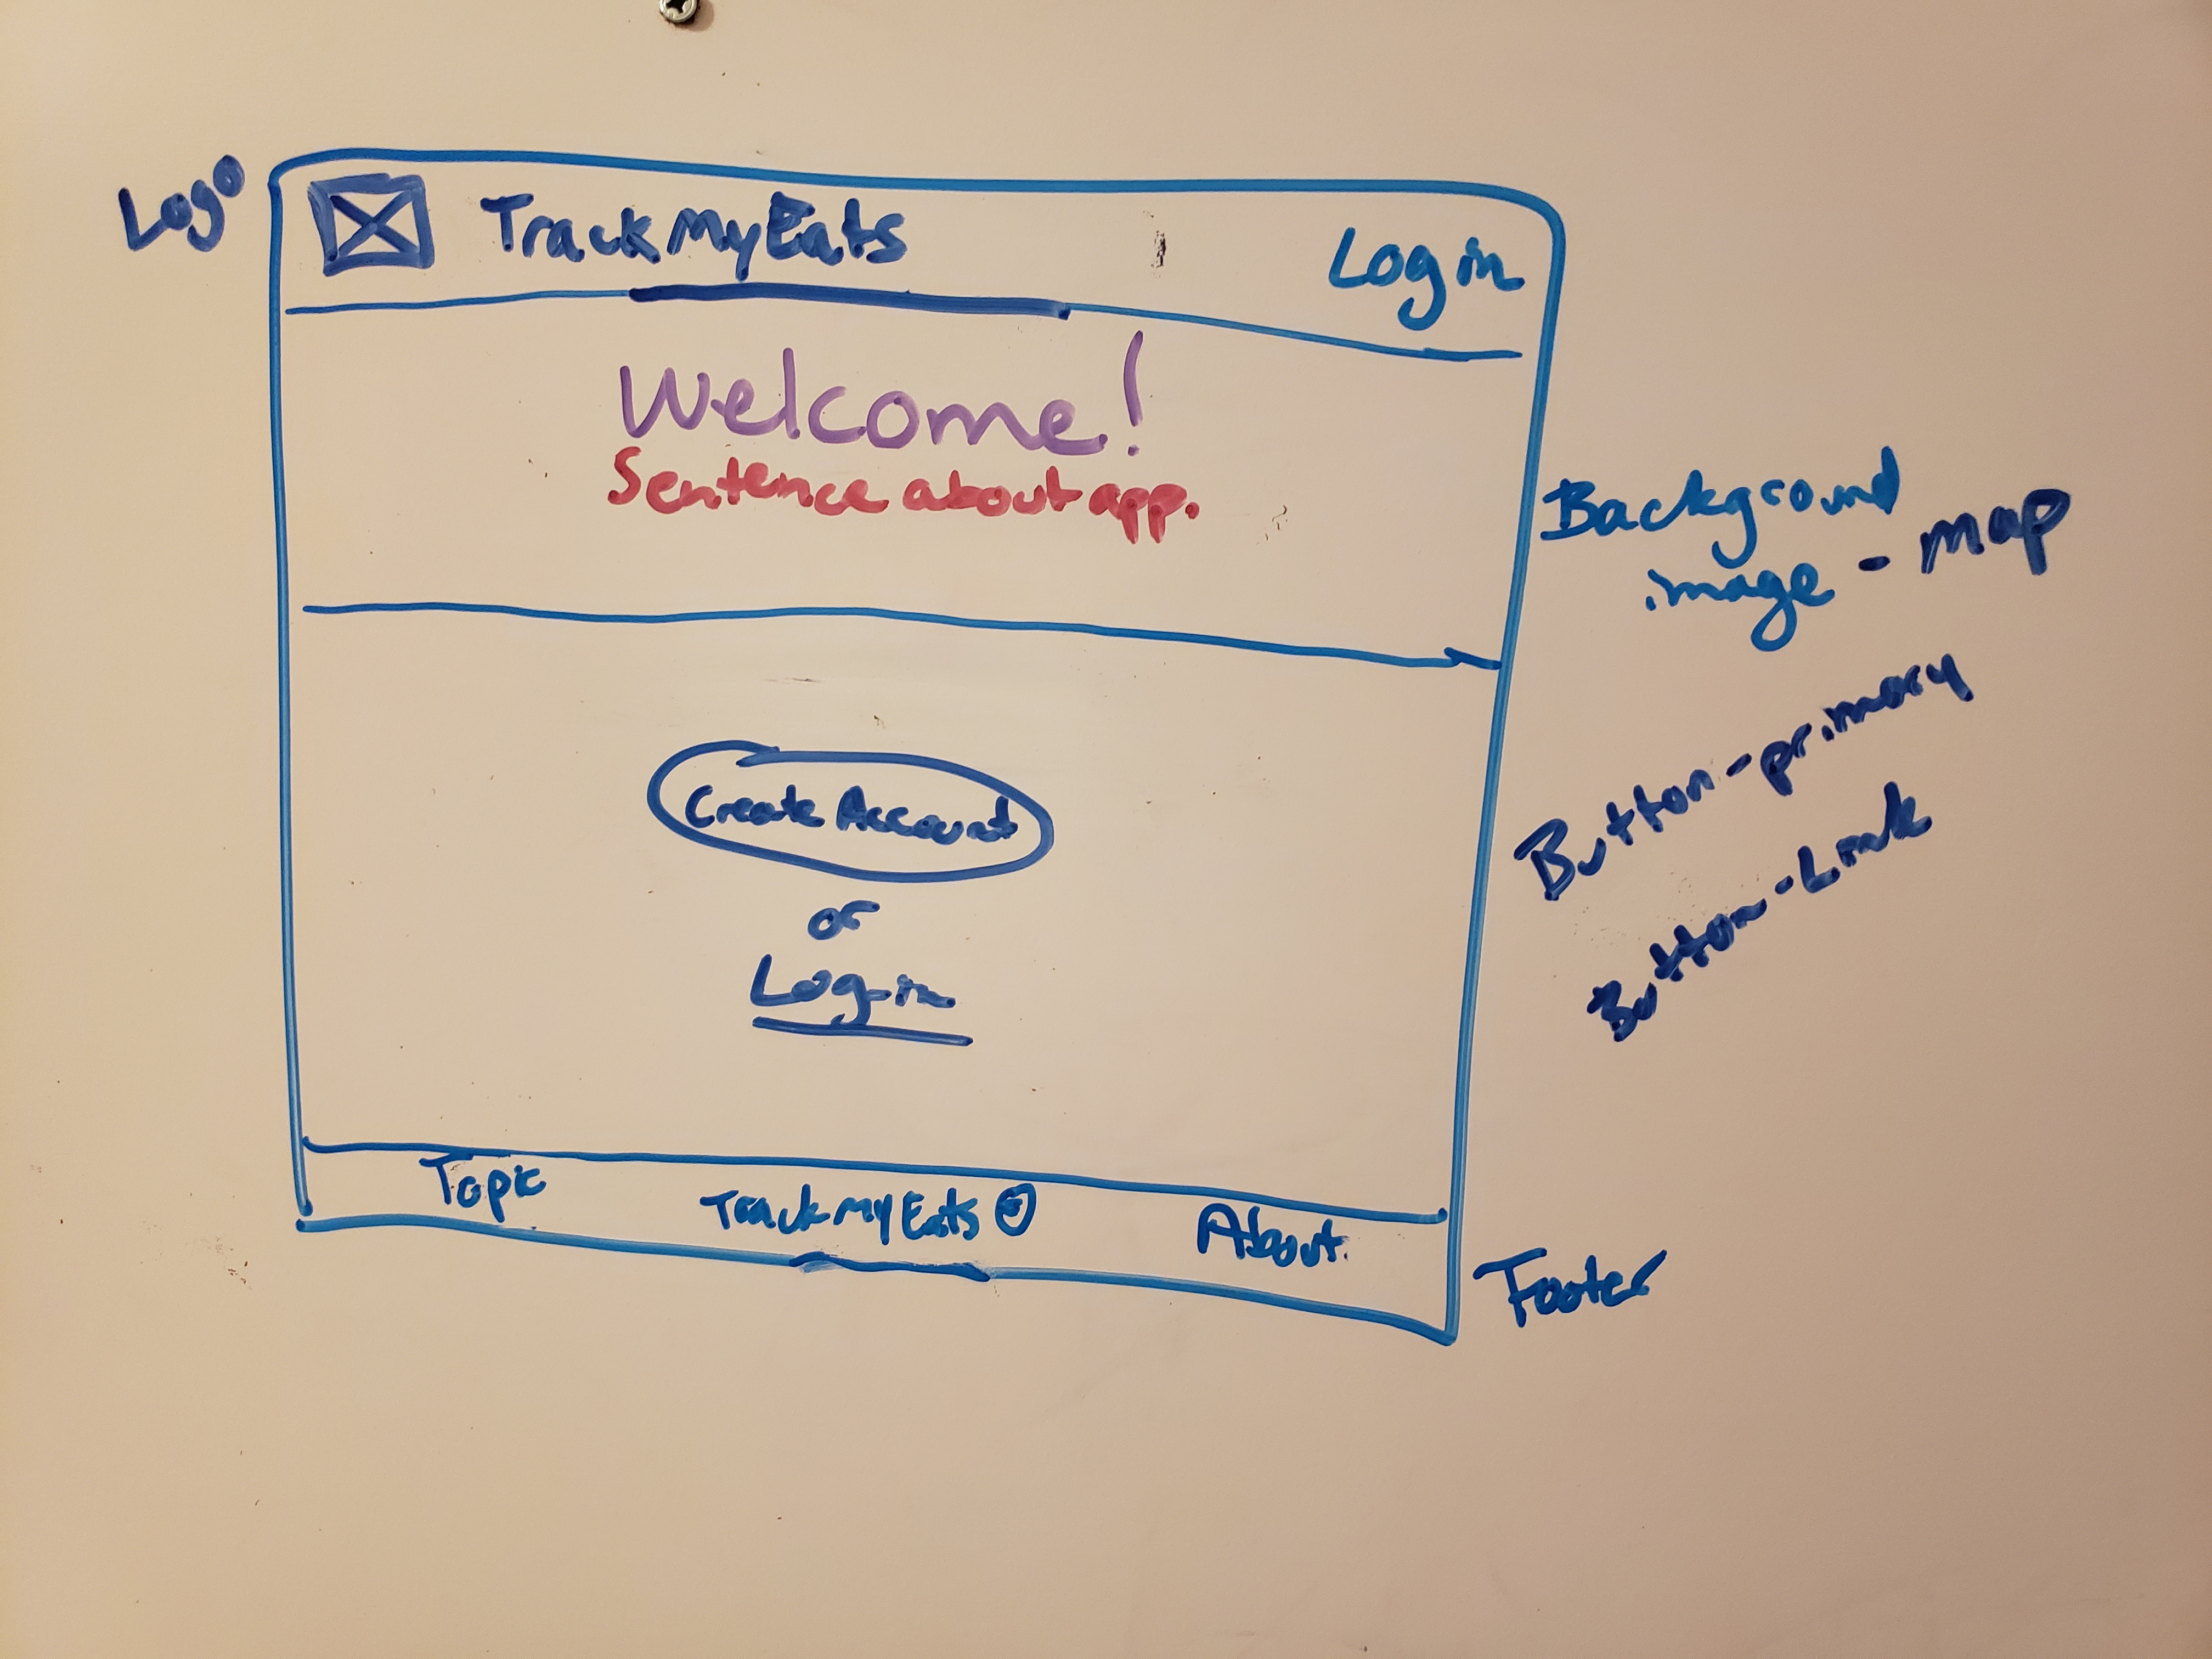 Logo
TrackMyEats
Login
Welcome!
Sentence about app.
Background
image - map
Create Account
or
Log-in
Button-primary
Button-Link
Topic
TrackMyEats ©
About.
Footer